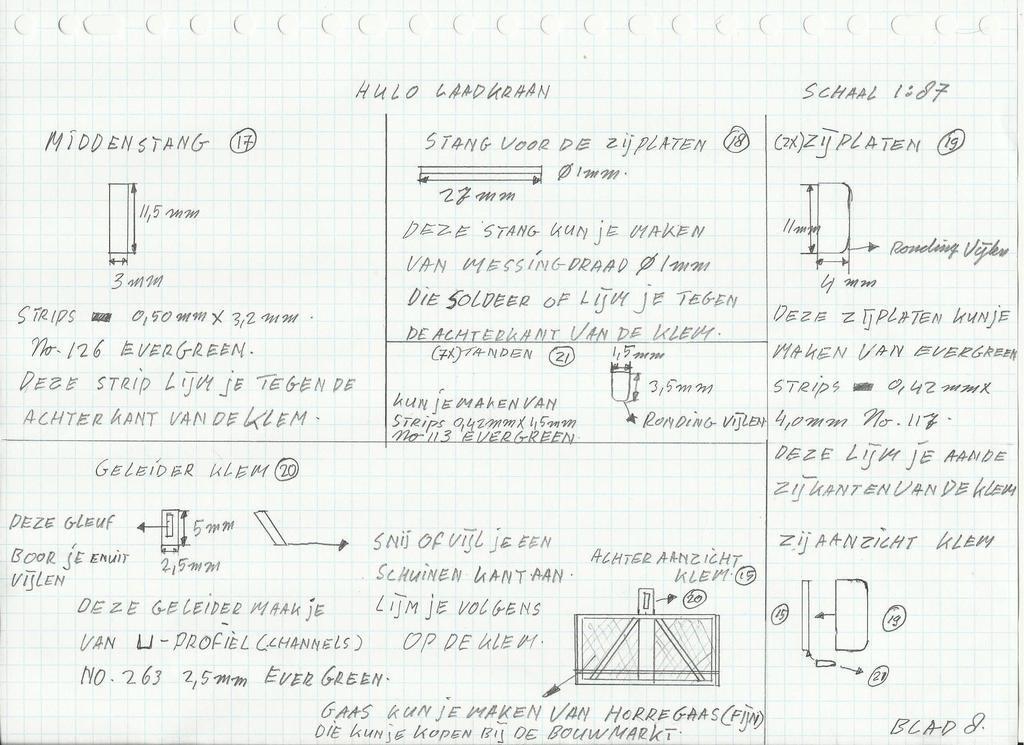 HULO LAADKRAAN
SCHAAL 1:87
MIDDENSTANG 17
11,5 mm
3 mm
STRIPS 0,50 mm X 3,2 mm.
No. 126 EVERGREEN.
DEZE STRIP LIJM JE TEGEN DE
ACHTERKANT VAN DE KLEM.
STANG VOOR DE ZIJPLATEN 18
Ø 1mm.
27 mm
DEZE STANG KUN JE MAKEN
VAN MESSINGDRAAD Ø 1mm
DIE SOLDEER OF LIJM JE TEGEN
DE ACHTERKANT VAN DE KLEM.
(7X) TANDEN 21
1,5 mm
3,5 mm
RONDING VIJLEN
KUN JE MAKEN VAN
STRIPS 0,42 mm X 1,5 mm
No 113 EVERGREEN.
(2X) ZIJPLATEN 19
11 mm
RONDING VIJLEN
4 mm
DEZE ZIJPLATEN KUN JE
MAKEN VAN EVERGREEN
STRIPS 0,42 mm X
4,0 mm No. 117
DEZE LIJM JE AAN DE
ZIJKANTEN VAN DE KLEM
ZIJAANZICHT KLEM
15
19
21
GELEIDER KLEM 20
DEZE GLEUF
BOOR JE EN UIT
VIJLEN
5 mm
2,5 mm
DEZE GELEIDER MAAK JE
VAN U-PROFIEL (CHANNELS)
NO. 263 2,5 mm EVERGREEN.
SNIJ OF VIJL JE EEN
SCHUINEN KANT AAN.
LIJM JE VOLGENS
OP DE KLEM.
ACHTERAANZICHT
KLEM. 15
20
GAAS KUN JE MAKEN VAN HORREGAAS (FIJN)
DIE KUN JE KOPEN BIJ DE BOUWMARKT.
BLAD 8.